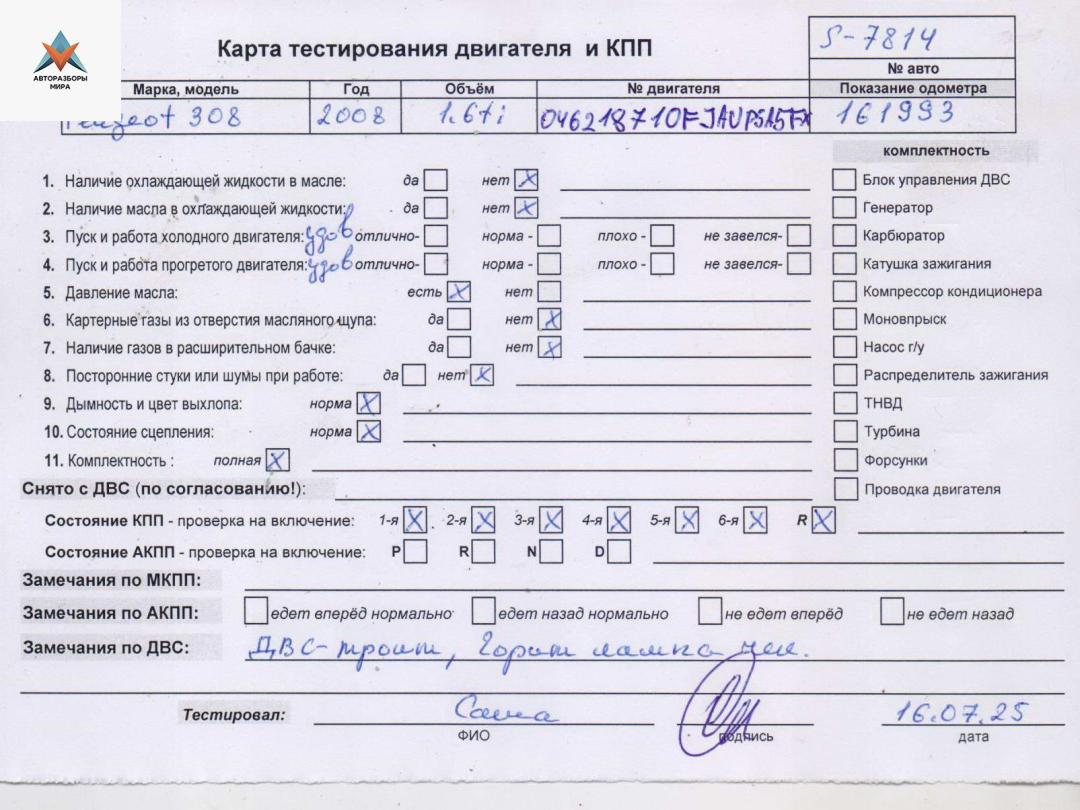 АВТОРАЗБОРЫ
МИРА
Карта тестирования двигателя и КПП
S-7814
№ авто
Марка, модель Год Объём № двигателя Показание одометра
Peugeot 308 2008 1.6ti 046218710FJAUPSA5FX 161993
комплектность
1. Наличие охлаждающей жидкости в масле: да нет X Блок управления ДВС
2. Наличие масла в охлаждающей жидкости: да нет X Генератор
3. Пуск и работа холодного двигателя: удов отлично- норма - плохо - не завелся- Карбюратор
4. Пуск и работа прогретого двигателя: удов отлично- норма - плохо - не завелся- Катушка зажигания
5. Давление масла: есть X нет Компрессор кондиционера
6. Картерные газы из отверстия масляного щупа: да нет X Моновпрыск
7. Наличие газов в расширительном бачке: да нет X Насос г/у
8. Посторонние стуки или шумы при работе: да нет X Распределитель зажигания
9. Дымность и цвет выхлопа: норма X ТНВД
10. Состояние сцепления: норма X Турбина
11. Комплектность : полная X Форсунки
Снято с ДВС (по согласованию!): Проводка двигателя
Состояние КПП - проверка на включение: 1-я X 2-я X 3-я X 4-я X 5-я X 6-я X R X
Состояние АКПП - проверка на включение: P R N D
Замечания по МКПП:
Замечания по АКПП: едет вперёд нормально едет назад нормально не едет вперёд не едет назад
Замечания по ДВС: ДВС-троит, Горит лампа чек.
Тестировал: Саша 16.07.25
ФИО подпись дата